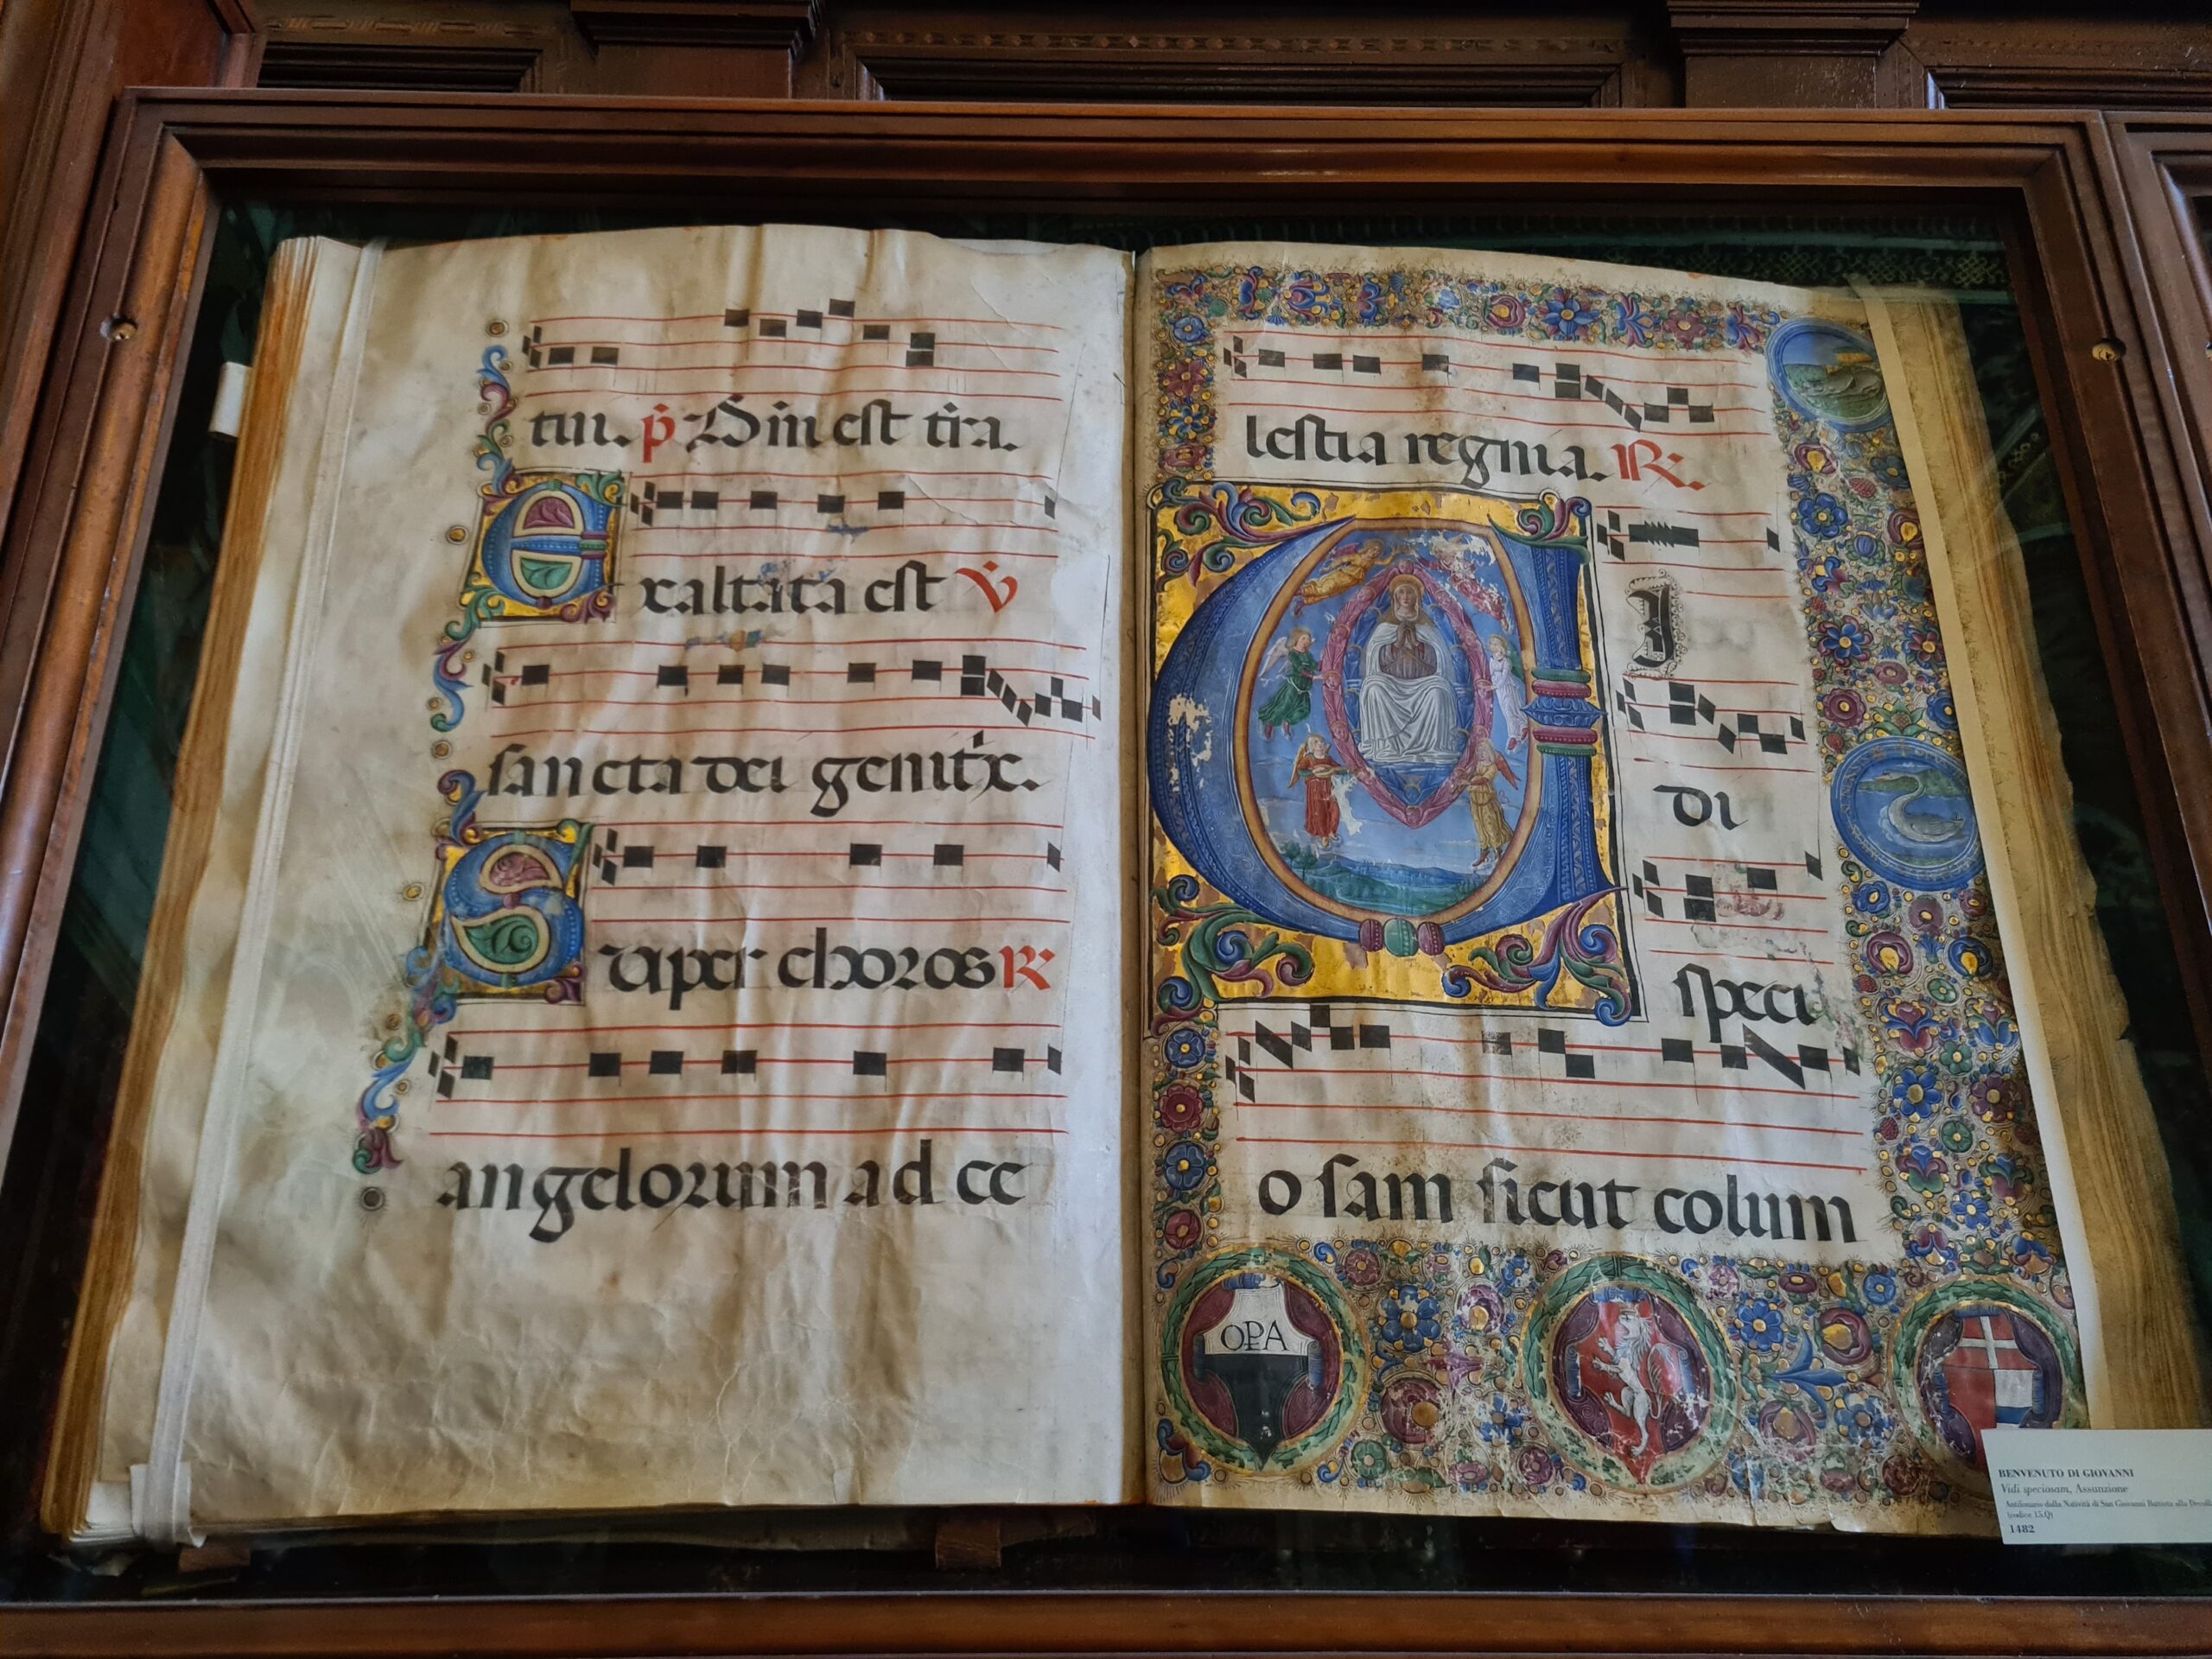 tui. p̃ Dñi est tr̃a.
Exaltata est ℣
sancta dei genitx̃.
Super choros ℟
angelorum ad ce
lestia regna. ℟.
VI
di
speci
o sam sicut colum
OPA
BENVENUTO DI GIOVANNI
Vidi speciosam, Assunzione
Antifonario dalla Natività di San Giovanni Battista alla
(codice 15.Q)
1482